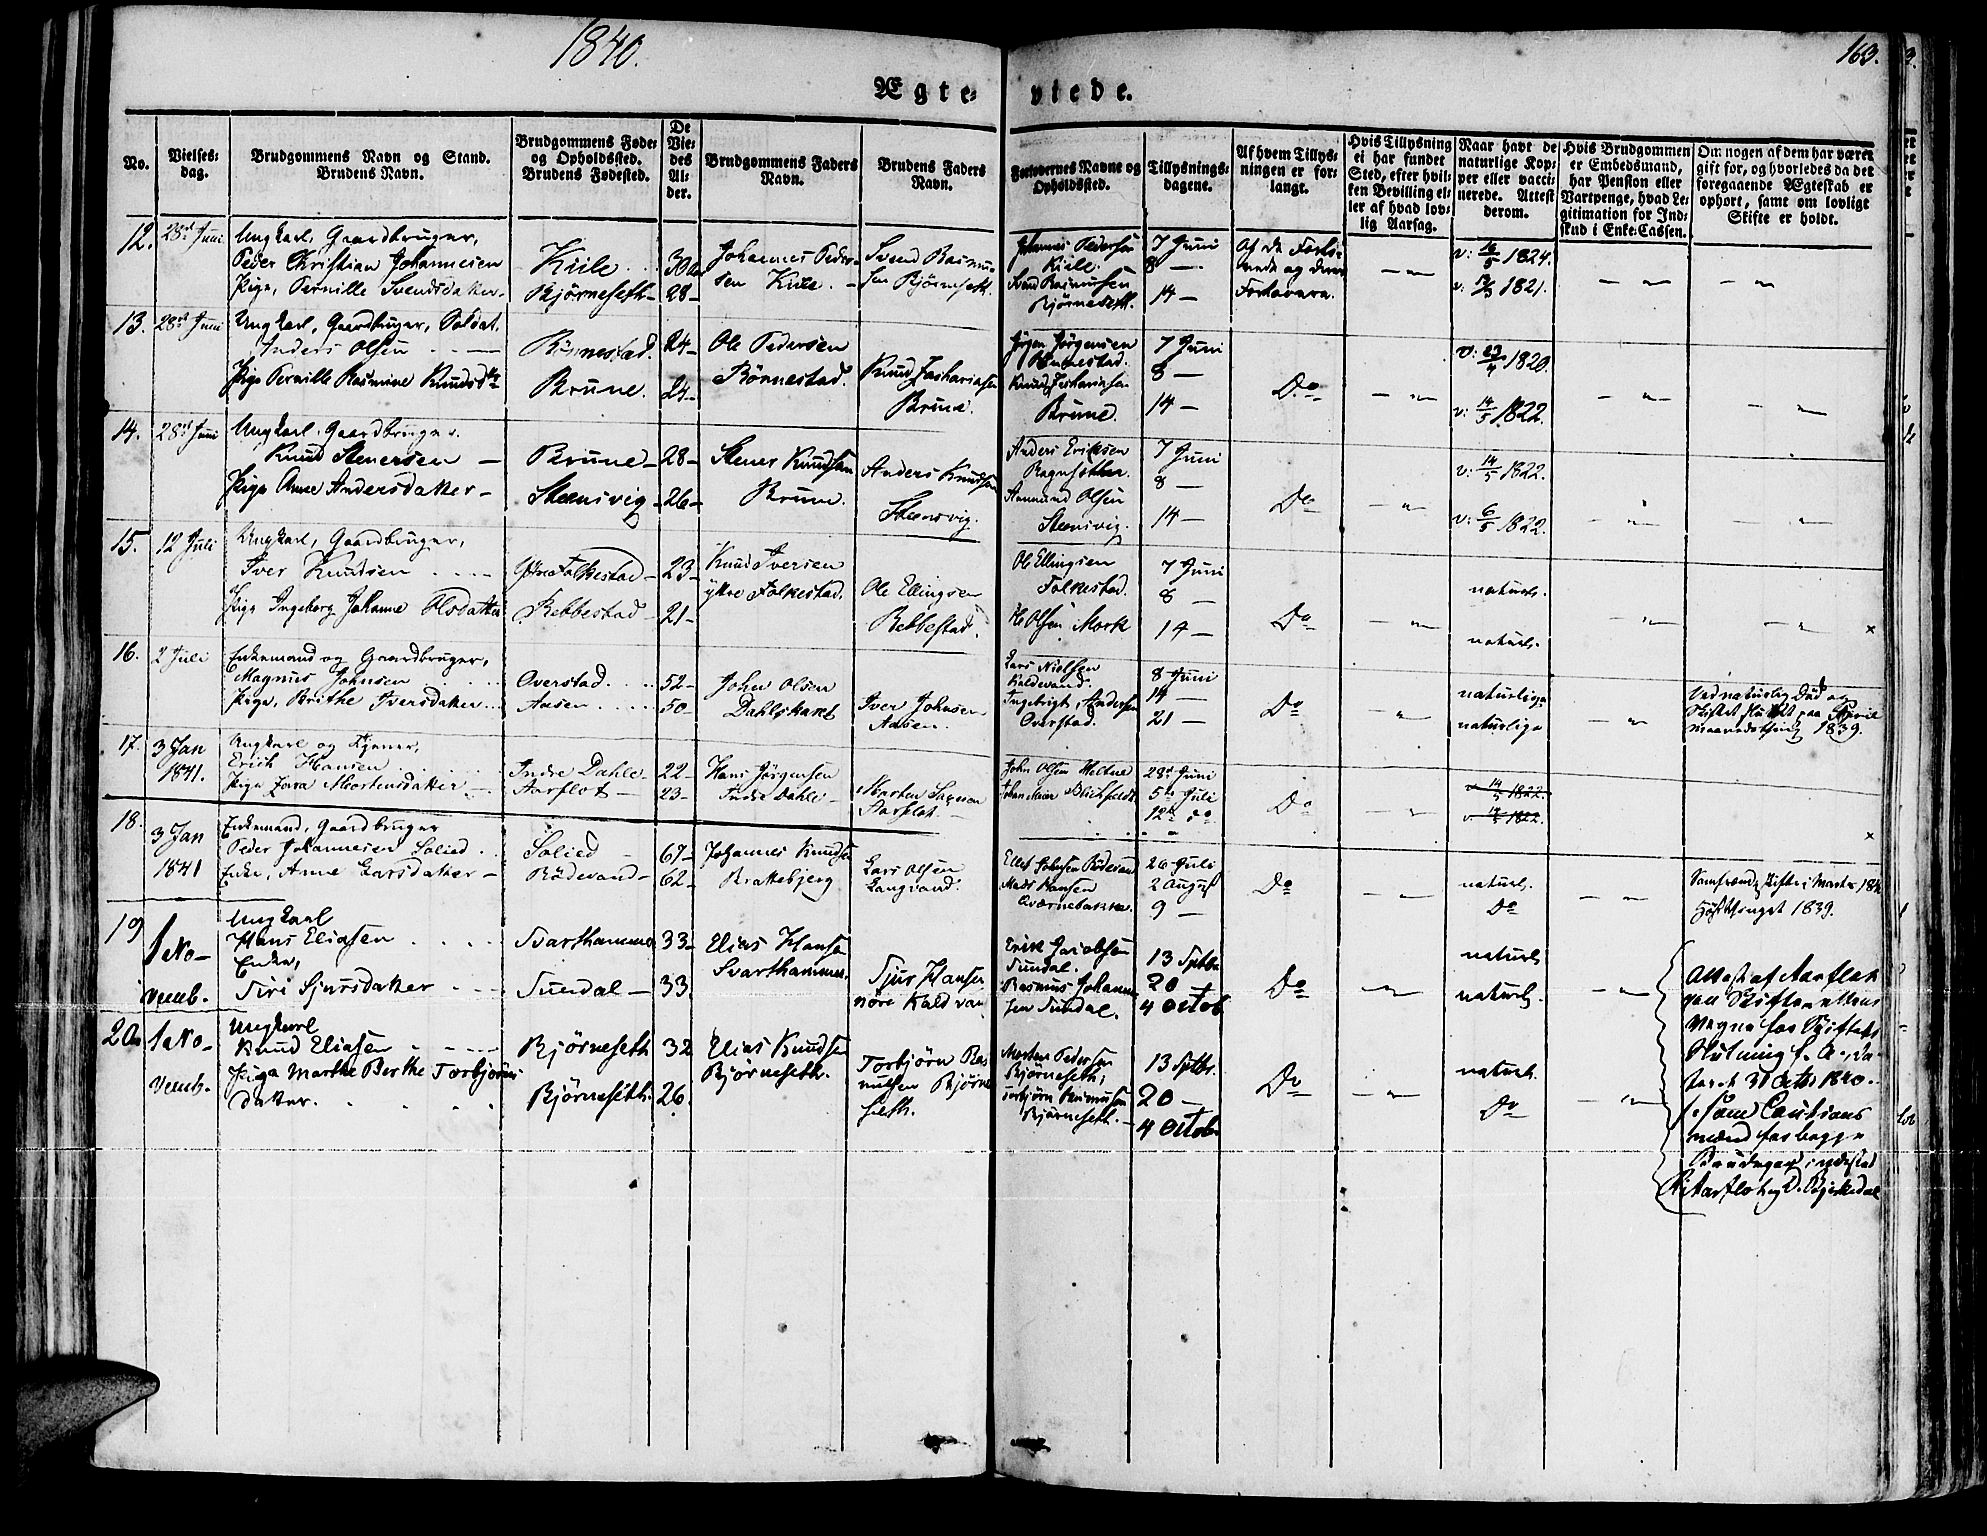 1840.
163.
Ægteviede.
No.
Vielses-
dag.
Brudgommens Navn og Stand.
Brudens Navn.
Brudgommens Føde-
og Opholdssted.
Brudens Fødested.
De
Vie-
des
Al-
der.
Brudgommens Faders
Navn.
Brudens Faders
Navn.
Forlovernes Navne og
Opholdssted.
Tillysnings-
dagene.
Af hvem Tillys-
ningen er for-
langt.
Hvis Tillysning
ei har fundet
Sted, efter hvil-
ken Bevilling el-
ler af hvad lov-
lig Aarsag.
Naar havt de
naturlige Kop-
per eller vacci-
nerede. Attest
derom.
Hvis Brudgommen
er Embedsmand,
har Pension eller
Vartpenge, hvad Le-
gitimation for Ind-
skud i Enke-Cassen.
Om nogen af dem har været
gift før, og hvorledes da det
foregaaende Ægteskab er
ophørt, samt om lovligt
Skifte er holdt.
12. 28de Juni
Ungkarl, Gaardbruger,
Peder Christian Johannesen
Pige, Pernille Svendsdatter
Kiile
Bjørneseth
30
28
Johannes Peder-
sen Kiile.
Svend Rasmu-
sen Bjørneseth.
Johannes Pedersen
Kiile.
Svend Rasmussen
Bjørneseth.
7 Juni
8 —
14 —
Af de Forlo-
vede og deres
Forlovere.
v: 16/5 1824.
v: 1821.
13. 28de Juni
Ungkarl, Gaardbruger, Soldat.
Anders Olsen
Pige Pernille Rasmine Knudsdtr
Rønnestad.
Brune.
24
24
Ole Pedersen
Rønnestad.
Knud Zachariasen
Brune.
Jørgen Jørgensen
Knud Zachariasen
Brune.
7 Juni
8 —
14 —
Do
v: 1820.
v: 14/5 1822.
14. 28de Juni
Ungkarl, Gaardbruger.
Knud Stenersen
Pige Anne Andersdatter
Brune
Steensvig
28
26
Stener Knudsen
Brune.
Anders Knudsen
Steensvig.
Anders Eriksen
Aamund Olsen
Steensvig.
7 Juni
8 —
14 —
Do
v: 14/5 1822.
v: 6/5 1822.
15. 12 Juli
Ungkarl, Gaardbruger,
Iver Knudsen
Pige Ingeborg Johanne Olsdatter
Ytre Folkestad
Rebbestad
23
21
Knud Iversen
ytre Folkestad.
Ole Ellingsen
Rebbestad.
Ole Ellingsen
Folkestad.
Olsen Mork
7 Juni
8 —
14 —
Do
naturl.
naturl.
16. 2 Juli
Enkemand og Gaardbruger,
Magnus Johnsen
Pige, Brithe Iversdatter
Overstad
Aasen
52
50
John Olsen
Dahlskaret
Iver Johnsen
Aasen
Lars Nielsen
Kaldevand.
Ingebrigt Andersen
Overstad.
8 Juni
14 —
21 —
Do
naturlige
naturlige
Ved naturlig Død og
Skiftet sluttet paa April
maanedsthing 1839.
17. 3 Jan
1841.
Ungkarl og Tjener,
Erich Hansen
Pige Zora Mortensdatter
Indre Dahle
Aarflot
22
23
Hans Jørgensen
Indre Dahle
Morten
Aarflot.
John Olsen
28de Juni
5te Juli
12te do.
Do
v. 14/5 1822.
v. 1822.
18. 3 Jan
1841
Enkemand, Gaardbruger
Peder Johannesen Solied
Enke, Anne Larsdatter
Solied
Rödevand
67
62
Johannes Knudsen
Brattebjerg
Lars Olsen
Langvand.
Ellef Johnsen Rödevand
Mads Hansen
Qværnebakke.
26 Juli
2 August
9 —
Do
naturl.
Do
Høstthinget 1839.
19 1 No-
vemb.
Ungkarl
Hans Eliasen
Enke,
Siri Sjursdatter
Svarthammer
Sundal
33
33
Elias Hansen
Svarthammer.
Sjur Hansen
nöre Kaldvan
Erik Jacobsen
Sundal.
Rasmus Johanne-
sen Sundal.
13 Sptbr
20 —
4 Octob
Do
naturl.
naturl.
Attest af Aarflot
paa Skifterettens
Vegne for Skiftets
Slutning
31 Octbr 1840.
20 1 No-
vemb.
Ungkarl
Knud Eliasen
Pige Marthe Berthe Torbjørns
datter.
Bjørneseth
Bjørneseth.
32
26.
Elias Knudsen
Bjørneseth.
Torbjörn Ras-
musen Bjørne
seth.
Morten Pedersen
Bjørneseth,
Torbjörn Rasmussen
Bjørneseth.
13 Sptbr.
20 —
4 Octob
Do
naturl.
Do
som Cautions
mænd for begge
Brudepar indestod
Aarflot og D. Bjerkedal